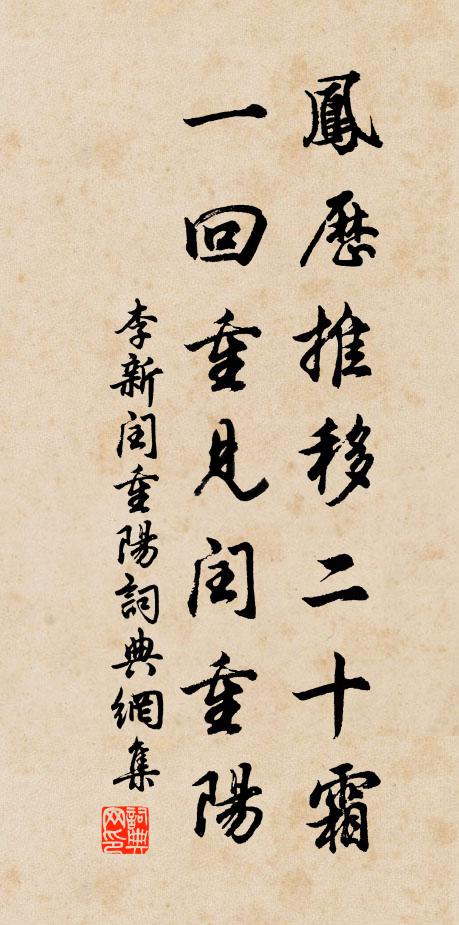 鳳歷推移二十霜
一回重見閏重陽
李新閏重陽詞典網集
詞典網印